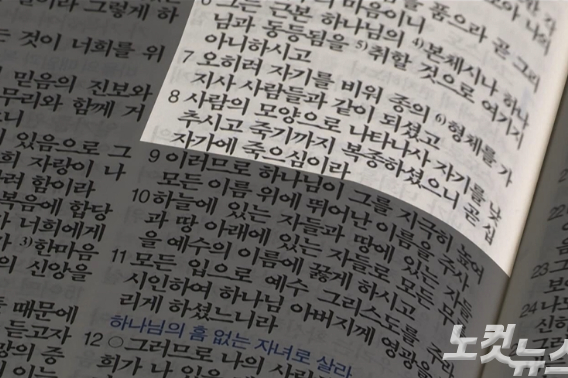 이라 그렇게 하
는 것이 너희를 위
믿음의 진보와
무리와 함께 거
니
있음으로 그
희 자랑이 나
러 함이라
복음에 합당
가 너희에게
3)한마음
의 신앙을
때문에
듣고자
망의 증
마음이니
6 그는 근본 하나님의 4)본체시나 하나
님과 동등됨을 5)취할 것으로 여기지
아니하시고
7 오히려 자기를 비워 종의 6)형체를 가
지사 사람들과 같이 되셨고
8 사람의 모양으로 나타나사 자기를 낮
추시고 죽기까지 복종하셨으니 곧 십
자가에 죽으심이라
9 이러므로 하나님이 그를 지극히 높여
모든 이름 위에 뛰어난 이름을 주사
10 하늘에 있는 자들과 땅에 있는 자들
과 땅 아래에 있는 자들로 모든 무릎
을 예수의 이름에 꿇게 하시고
11 모든 입으로 예수 그리스도를 주라
시인하여 하나님 아버지께 영광을
리게 하셨느니라
하나님의 흠 없는 자녀로 살라
12 ○그러므로 나의 사랑
희가 나 있을 때
22
23 그
24 나도
신하
노컷뉴스